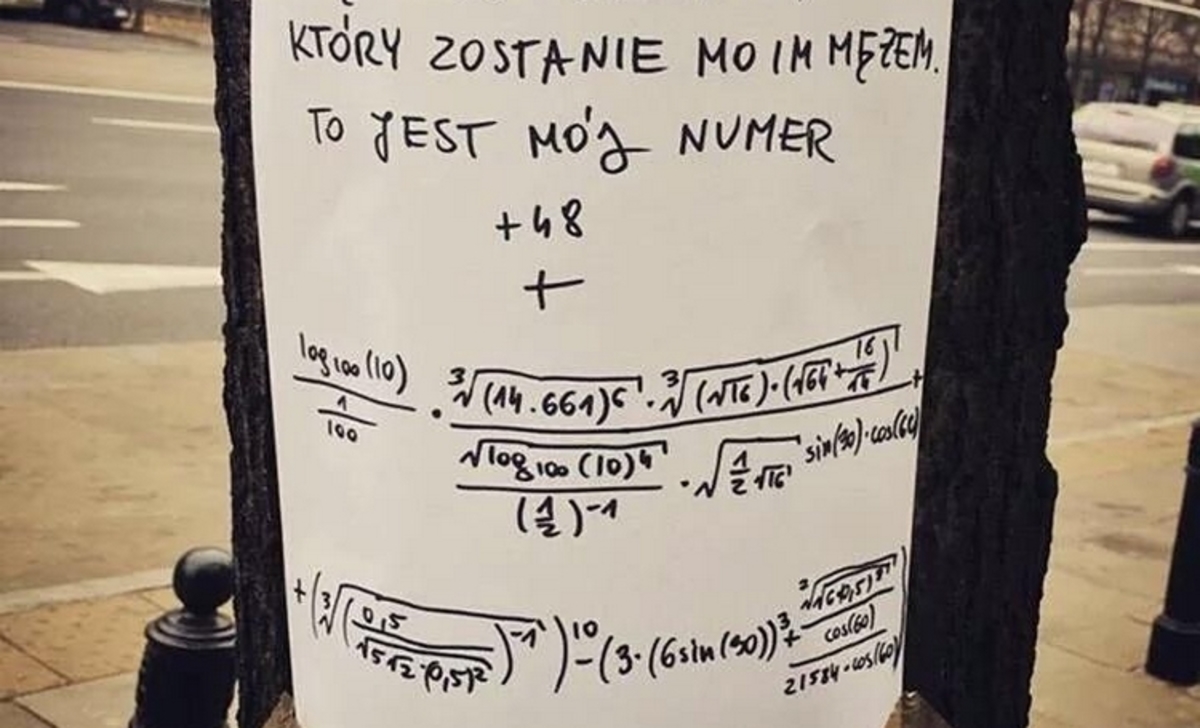 KTÓRY ZOSTANIE MOIM MĘŻEM.
TO JEST MÓJ NUMER
+48
+
log100(10) / (1/100) · (∛(14.661)6 · ∛(√16)·(√64+16/√4)) / (√log100(10)4 / (1/2)-1 · √(1/2 √16) sin(90)·cos(60)) +
+(∛(0,5 / √5√2·(0,5)2)-1)10-(3·(6sin(90))3+
cos(60)
21584·cos(60)